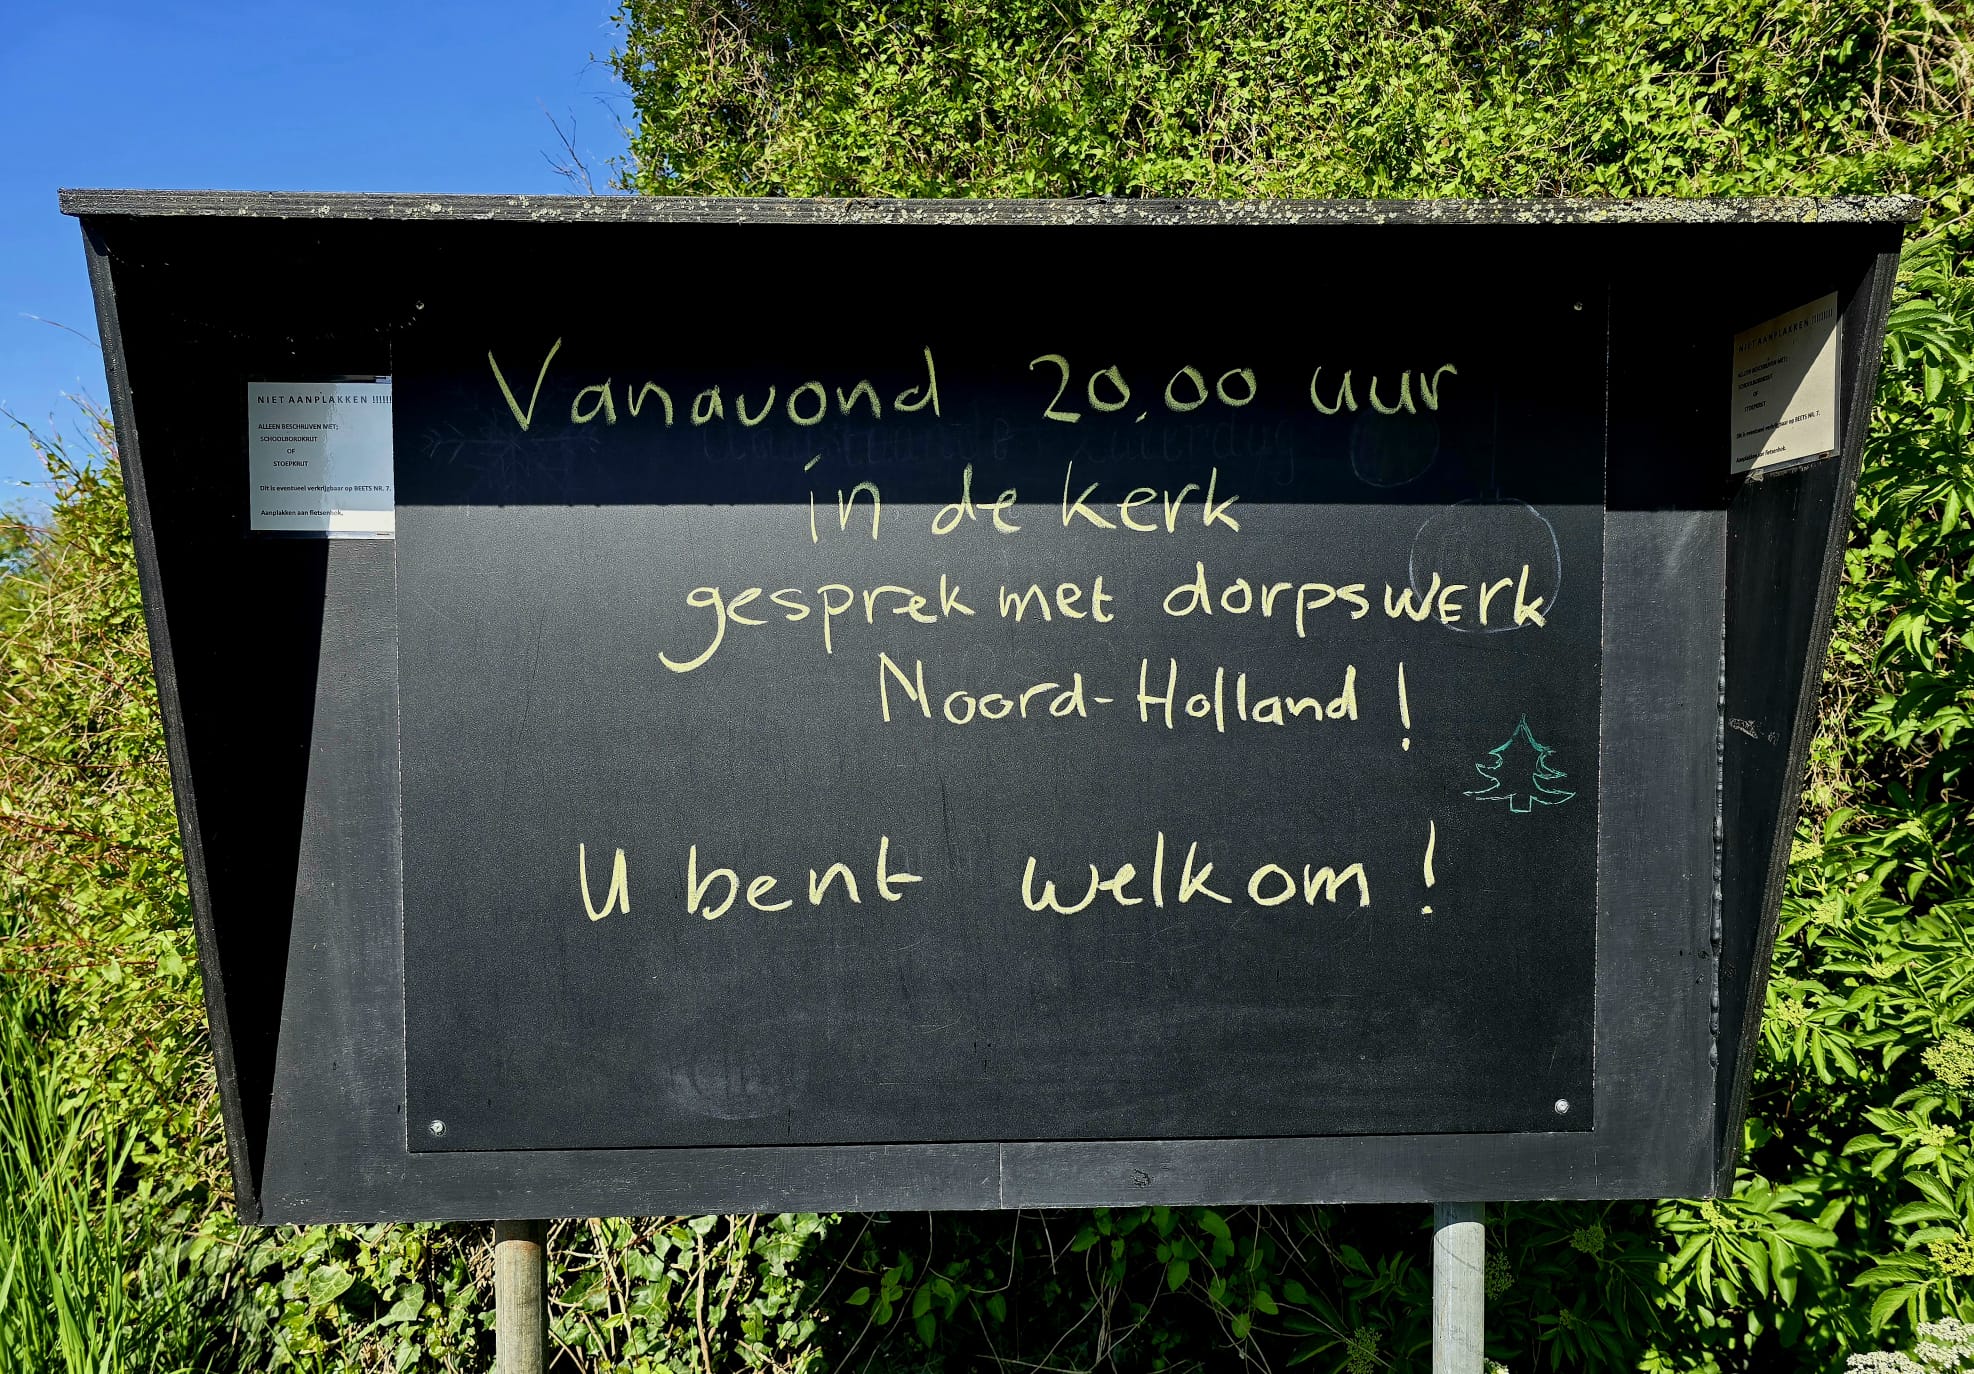 Vanavond 20.00 uur
in de kerk
gesprek met dorpswerk
Noord-Holland!
U bent welkom!
NIET AANPLAKKEN !!!!!!
ALLEEN BESCHRIJVEN MET;
SCHOOLBORDKRIJT
OF
STOEPKRIJT
Dit is eventueel verkrijgbaar op BEETS NR. 7.
Aanplakken aan fietsenhok.
NIET AANPLAKKEN !!!!!!!!
ALLEEN BESCHRIJVEN MET;
SCHOOLBORDKRIJT
OF
STOEPKRIJT
Dit is eventueel verkrijgbaar op BEETS NR. 7.
Aanplakken aan fietsenhok.